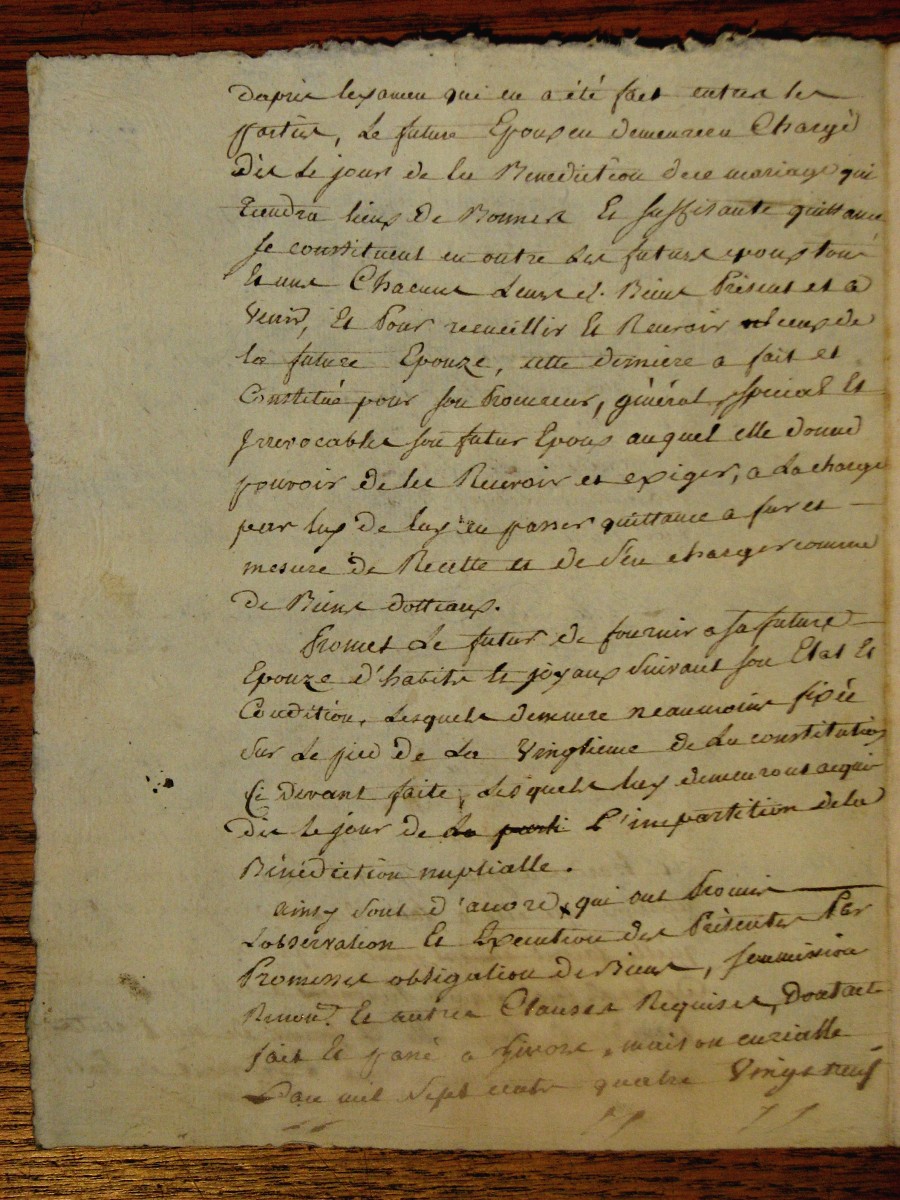 Dapres lexamen qui en a été fait entre les
parties, Le future Epoux en demeureen Chargé
dès Le jour de la Benediction de ce mariage qui
tiendra lieux de Bonnes Et suffisante quittance
se constituent en outre les futurs epoux tous
Et uns Chacuns Leurs d. Biens Présent et a
Venir, Et Pour recueillir Et Recevoir ceux de
la future Epouze, cette dernière a fait et
Constitué pour son Procureur, général, spécial Et
Irrevocables son futur Epoux auquel elle donne
pouvoir de les Recevoir et exiger, a La charge
par luy de luy en passer quittance a fur et
mesure de Recette et de s'en charger comme
de Biens dotteaux.
Promet Le futur de fournir a sa future
Epouze d'habits Et joyaux suivant son Etat Et
Condition, Lesquels demeure neaumoins fixée
sur Le pied de La Vingtieme de La constitution
Ci devant faite, Lesquels luy demeuront acquis
dès le jour de La parti L'impartition de la
Bénédiction nuptialle.
ainsy sont d'accord, qui ont Promis
Lobservation Et Execution des Présentes Par
Promesses obligation de Biens, soumission
Renon.n Et autres Clauses Requises, Dont acte
fait Et passé a Givors, maison curialle
Lan mil sept cents quatre Vingt neuf